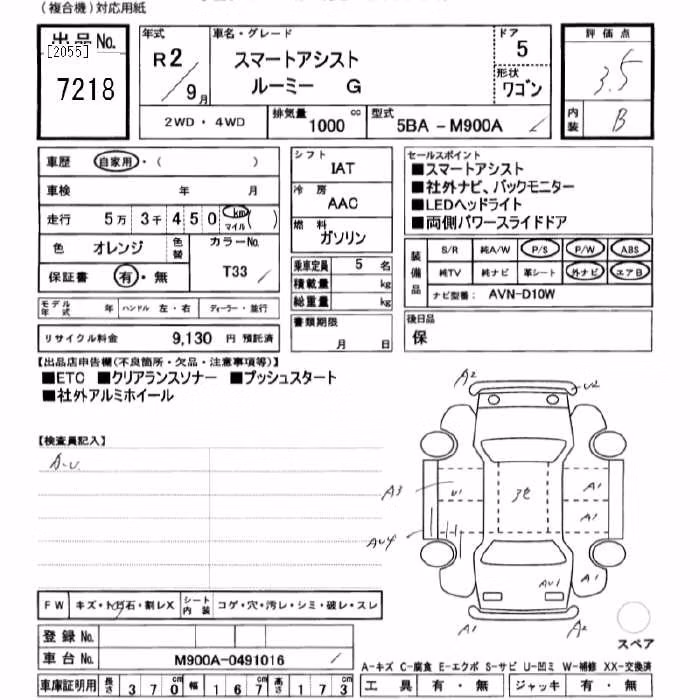 (複合機)対応用紙
出品No.
[2055]
7218
年式
R2/9月
車名・グレード
スマートアシスト
ルーミー G
ドア
5
形状
ワゴン
2WD・4WD
排気量
1000 cc
型式
5BA-M900A
評価点
3.5
内装
B
車歴 自家用・( )
車検 年 月
走行 5万3千450 km マイル( )
色 オレンジ 色替
カラーNo.
T33
保証書 有・無
モデル年式 年 ハンドル 左・右 ディーラー・並行
リサイクル料金 9,130 円 預託済
シフト
IAT
冷房
AAC
燃料
ガソリン
乗車定員 5 名
積載量 kg
総重量 kg
書類期限
月 日
セールスポイント
■スマートアシスト
■社外ナビ、バックモニター
■LEDヘッドライト
■両側パワースライドドア
装備品
S/R 純A/W P/S P/W ABS
純TV 純ナビ 革シート 外ナビ エアB
ナビ型番: AVN-D10W
後日品
保
【出品店申告欄(不良箇所・欠品・注意事項等)】
■ETC ■クリアランスソナー ■プッシュスタート
■社外アルミホイール
【検査員記入】
A.U
A2
U2
A3
U1
A1
A1
AU4
AU1
A1
A1
A2
FW キズ・トビ石・割レX シート内装 コゲ・穴・汚レ・シミ・破レ・スレ
登録No.
車台No. M900A-0491016
車庫証明用 長さ 370 cm 幅 167 cm 高さ 173 cm
スペア
A-キズ C-腐食 E-エクボ S-サビ U-凹ミ W-補修 XX-交換済
工具 有・無 ジャッキ 有・無